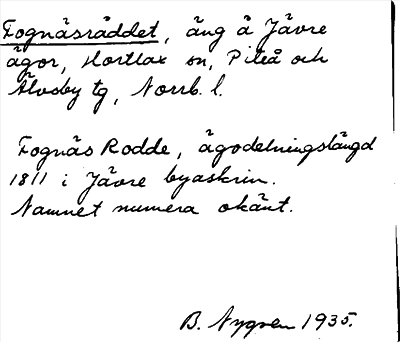 Fognäsräddet, äng å Jävre
ägor, Hortlax sn, Piteå och
Älvsby tg, Norrb. l.
Fognäs Rodde, ägodelningslängd
1811 i Jävre byaskrin.
Namnet numera okänt.
B. Nygren 1935.